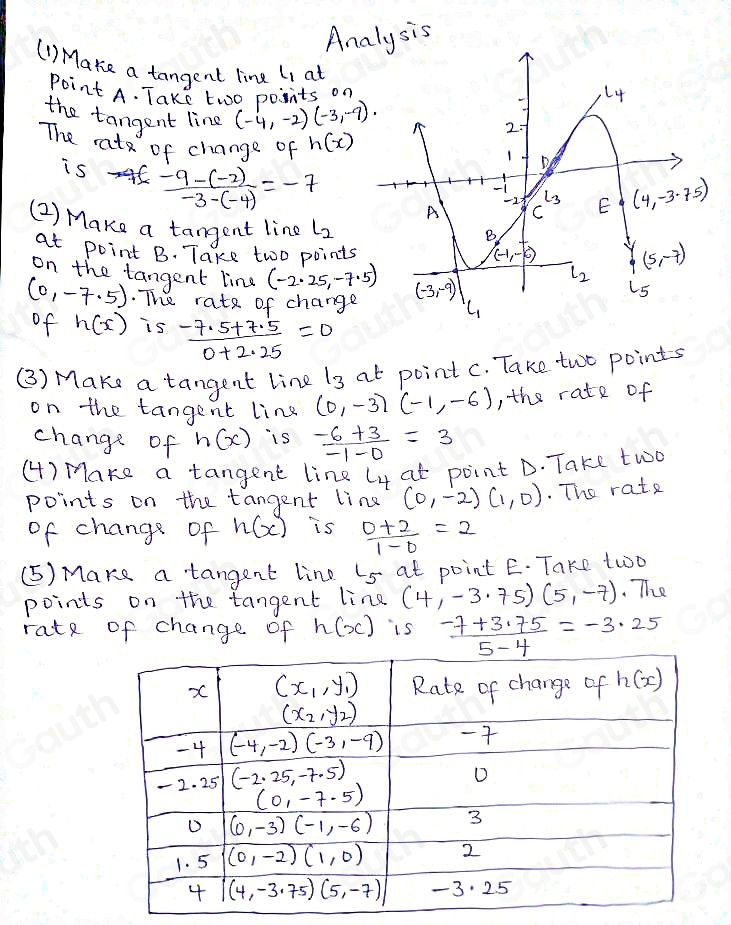 Analysis
(1) Make a tangent line L1 at
point A. Take two points on
the tangent line (-4, -2) (-3, -9).
The rate of change of h(x)
is -9-(-2)/-3-(-4) = -7
(2) Make a tangent line L2
at point B. Take two points
on the tangent line (-2.25, -7.5)
(0, -7.5). The rate of change
of h(x) is -7.5+7.5/0+2.25 = 0
L4
2
1
D
-1
-2
L3
C
A
B
(-1,-6)
E
(4, -3.75)
(5, -7)
L5
L2
(-3,-9)
L1
(3) Make a tangent line l3 at point C. Take two points
on the tangent line (0, -3) (-1, -6), the rate of
change of h(x) is -6+3/-1-0 = 3
(4) Make a tangent line L4 at point D. Take two
points on the tangent line (0, -2) (1, 0). The rate
of change of h(x) is 0+2/1-0 = 2
(5) Make a tangent line L5 at point E. Take two
points on the tangent line (4, -3.75) (5, -7). The
rate of change of h(x) is -7+3.75/5-4 = -3.25
x (x1, y1) Rate of change of h(x)
(x2, y2)
-4 (-4, -2) (-3, -9) -7
-2.25 (-2.25, -7.5) 0
(0, -7.5)
0 (0, -3) (-1, -6) 3
1.5 (0, -2) (1, 0) 2
4 (4, -3.75) (5, -7) -3.25